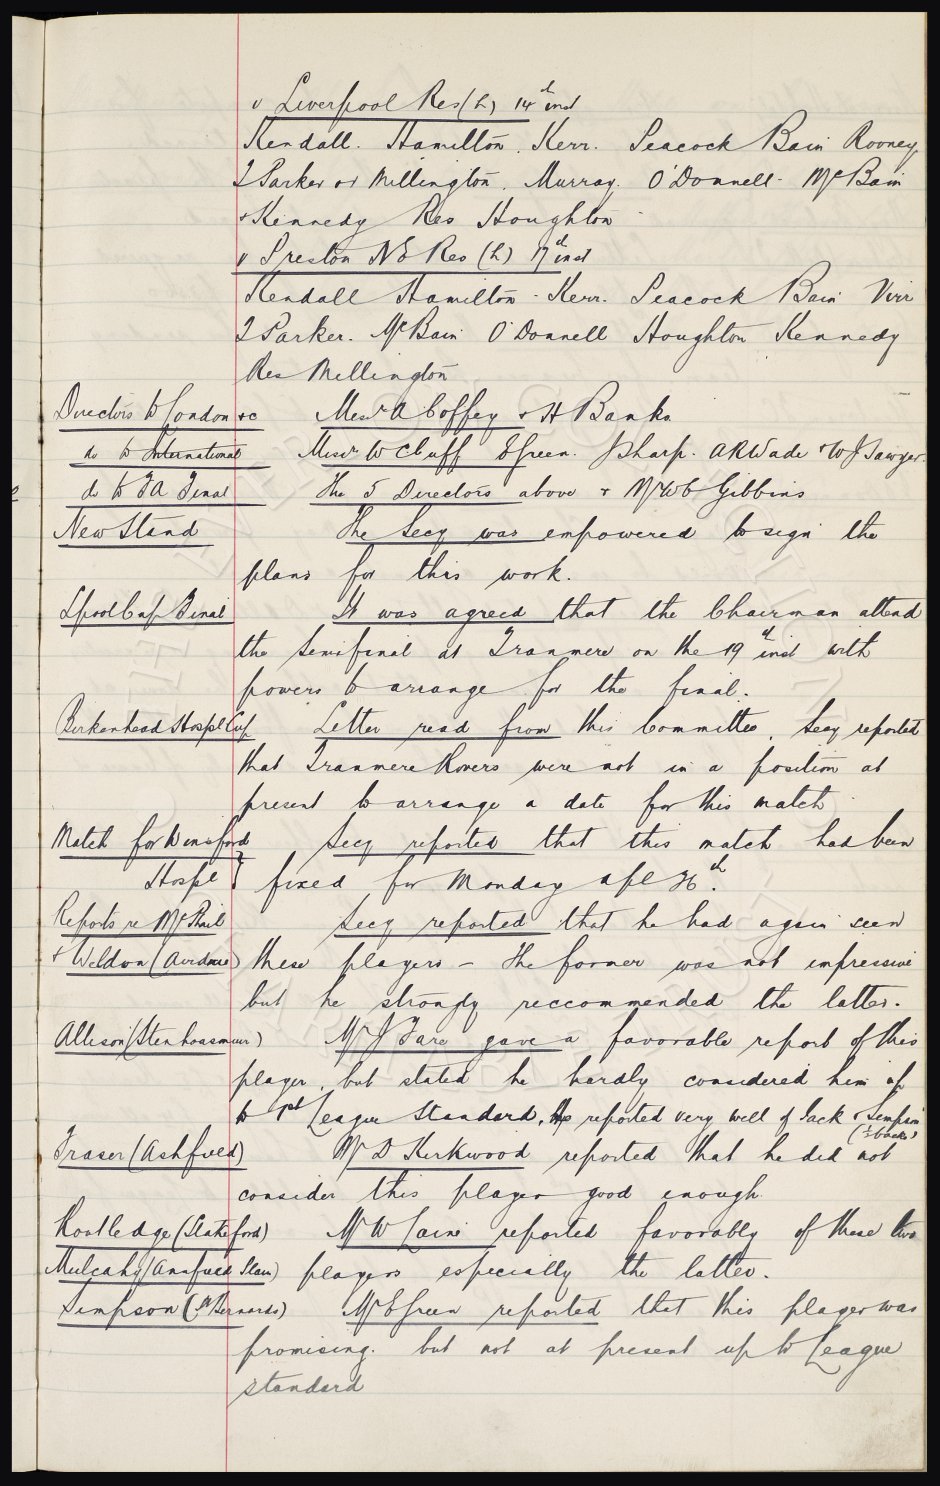 v Liverpool Res (h) 14th inst
Kendall. Hamilton. Kerr. Peacock Bain Rooney
J Parker or Millington. Murray. O'Donnell. McBain
+ Kennedy Res Houghton
v Preston N E Res (h) 17th inst
Kendall Hamilton. Kerr. Peacock Bain Virr
J Parker. McBain O'Donnell Houghton Kennedy
Res Millington
Directors to London &c Messrs A Coffey + H Banks
do to International Messrs W C Cuff E Green. J Sharp. A R Wade + W J Sawyer.
do to FA Final The 5 Directors above + Mr W C Gibbins
New Stand The Secy was empowered to sign the
plans for this work.
Lpool Cup Final It was agreed that the Chairman attend
the Semifinal at Tranmere on the 19th inst with
powers to arrange for the final.
Birkenhead Hospl Cup Letter read from this Committee. Secy reported
that Tranmere Rovers were not in a position at
present to arrange a date for this match
Match for Winsford Secy reported that this match had been
Hospl } fixed for Monday Apl 26th.
Reports re McPhail Secy reported that he had again seen
+ Weldon (Airdrie) these players – The former was not impressive
but he strongly reccommended the latter.
Allison (Stenhousemuir) Mr J Fare gave a favorable report of this
player, but stated he hardly considered him up
to 1st League Standard. He reported very well of Jack + Simpson
(½ backs)
Fraser (Ashfield) Mr D Kirkwood reported that he did not
consider this player good enough.
Routledge (Slateford) Mr W Laine reported favorably of these two
Mulcahy (Anafield Stan) players especially the latter.
Simpson (St Bernards) Mr E Green reported that this player was
promising. but not at present up to League
standard